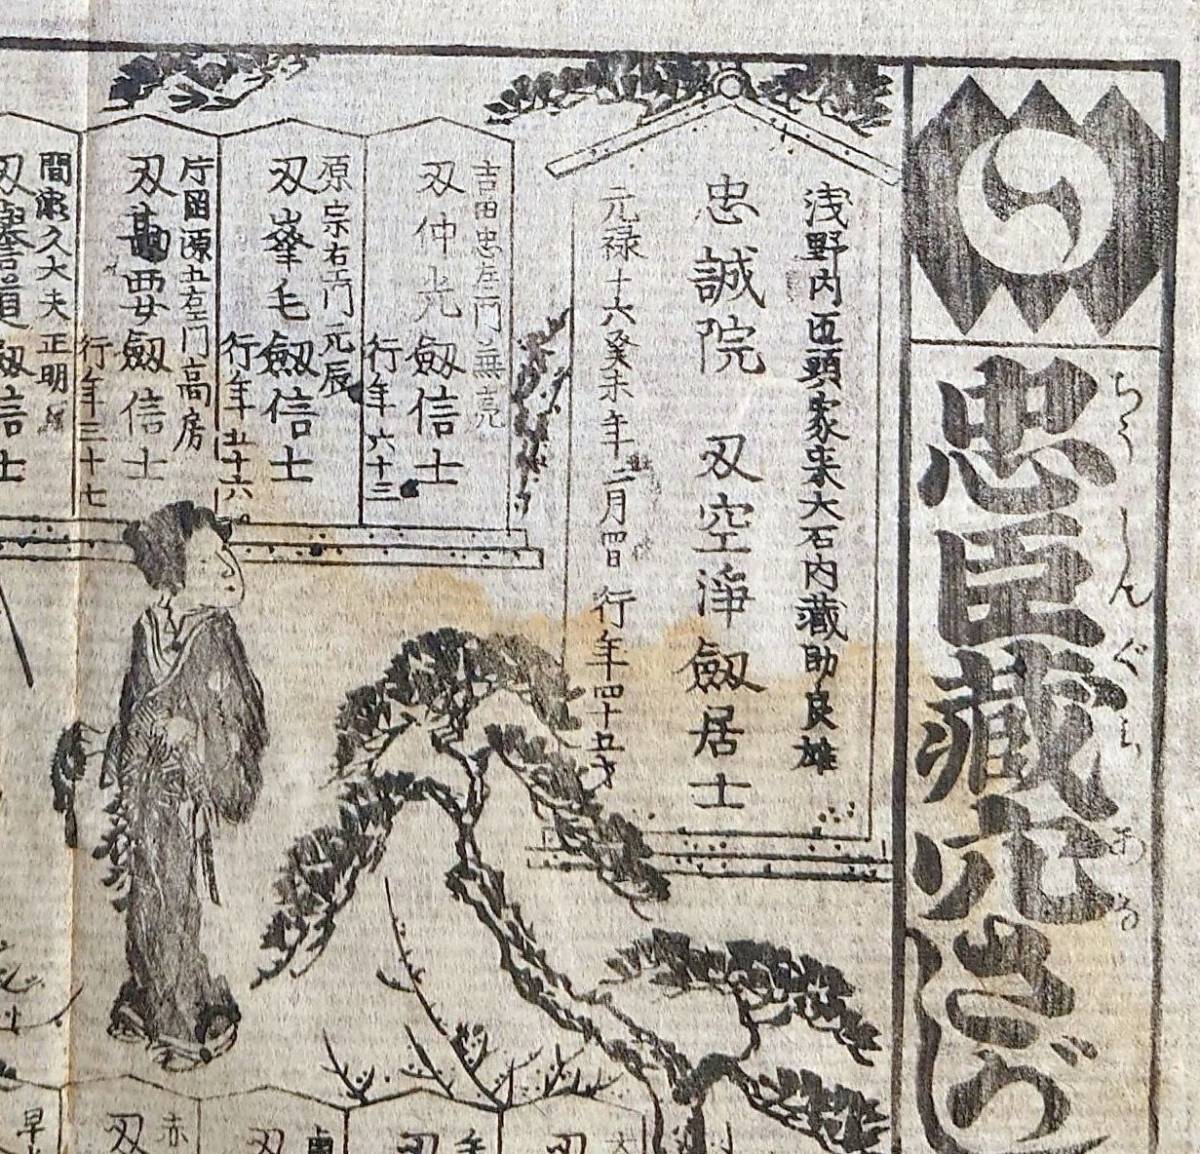 忠臣藏穴さがし
ちうしんぐらあな
浅野内匠頭家来大石内藏助良雄
忠誠院 刃空淨劔居士
元禄十六癸未年二月四日 行年四十五才
吉田忠左エ門兼亮
刃仲光劔信士
行年六十三
原宗右エ門元辰
刃峯毛劔信士
行年五十六
片岡源五右エ門高房
刃勘要劔信士
行年三十七
間瀬久大夫正明
刃譽道劔信士
刃
刃
刃
赤
刃
早